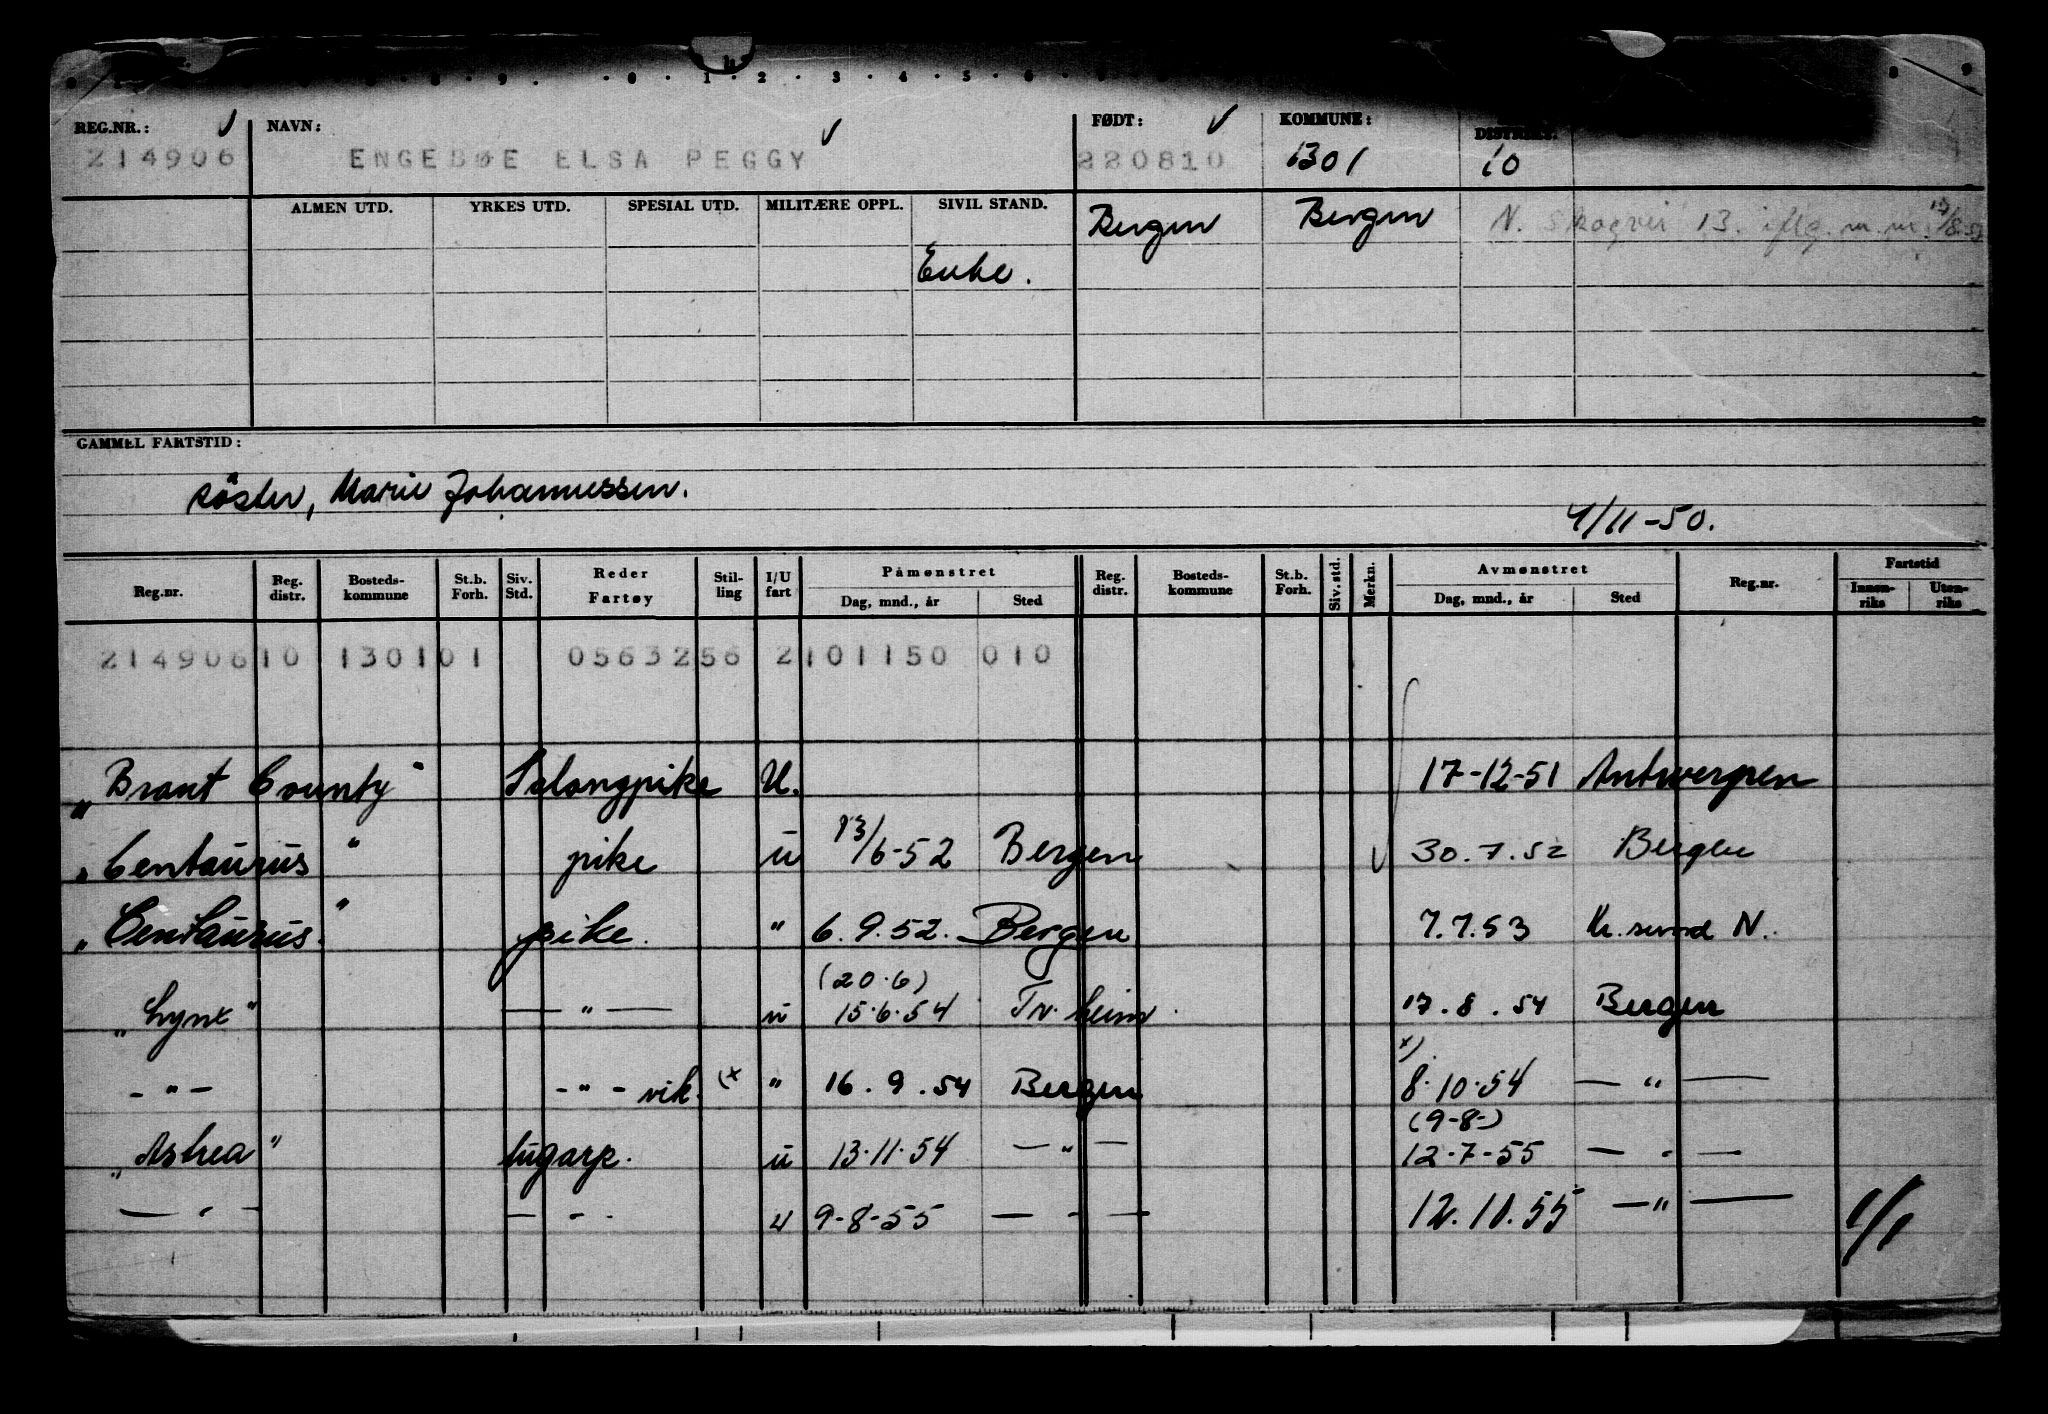 REG.NR.: NAVN: FØDT: KOMMUNE: DISTRIKT:
214906 ENGEBØE ELSA PEGGY 220810 1301 10
ALMEN UTD. YRKES UTD. SPESIAL UTD. MILITÆRE OPPL. SIVIL STAND.
Bergen Bergen N. Skogvei 13. iflg. m.m.
Enke.
GAMMEL FARTSTID:
söster, Marie Johannessen.
4/11-50.
Reg.nr. Reg. distr. Bosteds-kommune St.b. Forh. Siv. Std. Reder Fartøy Stil-ling I/U fart Påmønstret Dag, mnd., år Sted Reg. distr. Bosteds-kommune St.b. Forh. Siv. std. Merkn. Avmønstret Dag, mnd., år Sted Reg.nr. Fartstid Innen-riks Uten-riks
214906 10 1301 01 0563256 2 101150 010
"Brant County" Salongpike U. 17-12-51 Antwerpen
"Centaurus" pike u 13/6-52 Bergen 30.7.52 Bergen
"Centaurus" pike. " 6.9.52. Bergen 7.7.53 Kr.sund N.
(20.6)
"Lynx" — " — u 15.6.54 Tr.heim 17.8.54 Bergen
x)
- " - - " - vik. (x " 16.9.54 Bergen 8.10.54 — " —
(9-8-)
"Astrea" lugarp. u 13.11.54 — " — 12-7-55 — " —
— " — — " — u 9-8-55 — " — 12.11.55 — " —